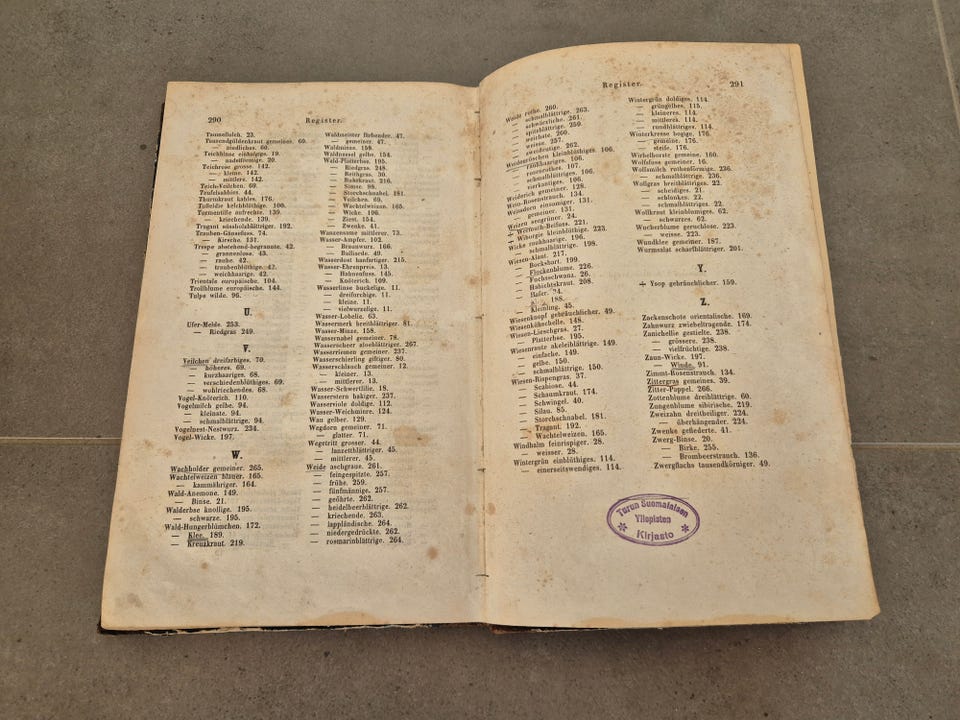 290
Register.
Taumelloch. 23.
Tausendgüldenkraut gemeines. 60.
— niedliches. 60.
Teichbinse eichelige. 19.
— nadelförmige. 20.
Teichrose grosse. 142.
— kleine. 142.
— mittlere. 142.
Teich-Veilchen. 69.
Teufelsabbiss. 44.
Thurmkraut kahles. 176.
Tofieldie kelchblüthige. 100.
Tormentille aufrechte. 139.
— kriechende. 139.
Tragant süssholzblättriger. 192.
Trauben-Gänsefuss. 74.
— Kirsche. 131.
Trespe abstehend-begrannte. 42.
— grannenlose. 43.
— rauhe. 42.
— traubenblüthige. 42.
— weichhaarige. 42.
Trientale europäische. 104.
Trollblume europäische. 144.
Tulpe wilde. 96.
U.
Ufer-Melde. 253.
— Riedgras 249.
V.
Veilchen dreifarbiges. 70.
— höheres. 69.
— kurzhaariges. 68.
— verschiedenblüthiges. 69.
— wohlriechendes. 68.
Vogel-Knöterich. 110.
Vogelmilch gelbe. 94.
— kleinste. 94.
— schmalblättrige. 94.
Vogelnest-Nestwurz. 234.
Vogel-Wicke. 197.
W.
Wachholder gemeiner. 265.
Wachtelweizen blauer. 165.
— kammähriger. 164.
Wald-Anemone. 149.
— Binse. 21.
Walderbse knollige. 195.
— schwarze. 195.
Wald-Hungerblümchen. 172.
— Klee. 189.
— Kreuzkraut. 219.
Waldmeister färbender. 47.
— gemeiner. 47.
Waldminze. 159.
Waldnessel gelbe. 154.
Wald-Platterbse. 195.
— Riedgras. 248.
— Reithgras. 30.
— Ruhrkraut. 216.
— Simse. 98.
— Storchschnabel. 181.
— Veilchen. 69.
— Wachtelweizen. 165.
— Wicke. 196.
— Ziest. 154.
— Zwenke. 41.
Wanzensame mittlerer. 73.
Wasser-Ampfer. 102.
— Braunwurz. 166.
— Bulliarde. 49.
Wasserdost hanfartiger. 215.
Wasser-Ehrenpreis. 13.
— Hahnenfuss. 145.
— Knöterich. 109.
Wasserlinse buckelige. 11.
— dreifurchige. 11.
— kleine. 11.
— vielwurzelige. 11.
Wasser-Lobelie. 63.
Wassermerk breitblättriger. 81.
Wasser-Minze. 158.
Wassernabel gemeiner. 78.
Wasserscheer aloeblättriger. 267.
Wasserriemen gemeiner. 237.
Wasserschierling giftiger. 80.
Wasserschlauch gemeiner. 12.
— kleiner. 13.
— mittlerer. 13.
Wasser-Schwertlilie. 18.
Wasserstern hakiger. 237.
Wasserviole doldige. 112.
Wasser-Weichmiere. 124.
Wau gelber. 129.
Wegdorn gemeiner. 71.
— glatter. 71.
Wegetritt grosser. 44.
— lanzettblättriger. 45.
— mittlerer. 45.
Weide aschgraue. 261.
— feingespitzte. 257.
— frühe. 259.
— fünfmännige. 257.
— geöhrte. 262.
— heidelbeerblättrige. 262.
— kriechende. 263.
— lappländische. 264.
— niedergedrückte. 262.
— rosmarinblättrige. 264.
Register.
291
Weide rothe. 260.
— schmalblättrige. 263.
— schwärzliche. 261.
— spitzblättrige. 259.
— weichste. 260.
— weisse. 257.
— zweideutige. 262.
Weidenröschen kleinblüthiges. 106.
— rauhhaariges. 106.
— rosenrothes. 107.
— schmalblättriges. 106.
— vierkantiges. 106.
Weiderich gemeiner. 128.
Wein-Rosenstrauch. 134.
Weissdorn einsamiger. 131.
— gemeiner. 131.
Weizen seegrüner. 24.
+ Wermuth-Beifuss. 221.
+ Wiborgie kleinblüthige. 223.
Wicke rauhhaarige. 196.
— schmalblättrige. 198.
Wiesen-Alant. 217.
— Bocksbart. 199.
— Flockenblume. 226.
— Fuchsschwanz. 26.
— Habichtskraut. 208.
— Hafer.
188.
— Kleinling. 45.
Wiesenknopf gebräuchlicher. 49.
Wiesenkühschelle. 148.
Wiesen-Lieschgras. 27.
— Platterbse. 195.
Wiesenraute akeleiblättrige. 149.
— einfache. 149.
— gelbe. 150.
— schmalblättrige. 150.
Wiesen-Rispengras. 37.
— Scabiose. 44.
— Schaumkraut. 174.
— Schwingel. 40.
— Silau. 85.
— Storchschnabel. 181.
— Tragant. 192.
— Wachtelweizen. 165.
Windhalm feinrispiger. 28.
— weisser. 28.
Wintergrün einblüthiges. 114.
— einerseitswendiges. 114.
Wintergrün doldiges. 114.
— grüngelbes. 115.
— kleineres. 114.
— mittleres. 114.
— rundblättriges. 114.
Winterkresse bogige. 176.
— gemeine. 176.
— steife. 176.
Wirbelborste gemeine. 160.
Wolfsfuss gemeiner. 16.
Wolfsmilch rothenförmige. 236.
— schmalblättrige. 236.
Wollgras breitblättriges. 22.
— scheidiges. 21.
— schlankes. 22.
— schmalblättriges. 22.
Wollkraut kleinblumiges. 62.
— schwarzes. 62.
Wucherblume geruchlose. 223.
— weisse. 223.
Wundklee gemeiner. 187.
Wurmsalat scharfblättriger. 201.
Y.
+ Ysop gebräuchlicher. 159.
Z.
Zackenschote orientalische. 169.
Zahnwurz zwiebeltragende. 174.
Zanichellie gestielte. 238.
— grössere. 238.
— vielfrüchtige. 238.
Zaun-Wicke. 197.
— Winde. 91.
Zimmt-Rosenstrauch. 134.
Zittergras gemeines. 39.
Zitter-Pappel. 266.
Zottenblume dreiblättrige. 60.
Zungenblume sibirische. 219.
Zweizahn dreitheiliger. 224.
— überhängender. 224.
Zwenke gefiederte. 41.
Zwerg-Binse. 20.
— Birke. 255.
— Brombeerstrauch. 136.
Zwergflachs tausendkörniger. 49.
Turun Suomalaisen
Yliopiston
Kirjasto